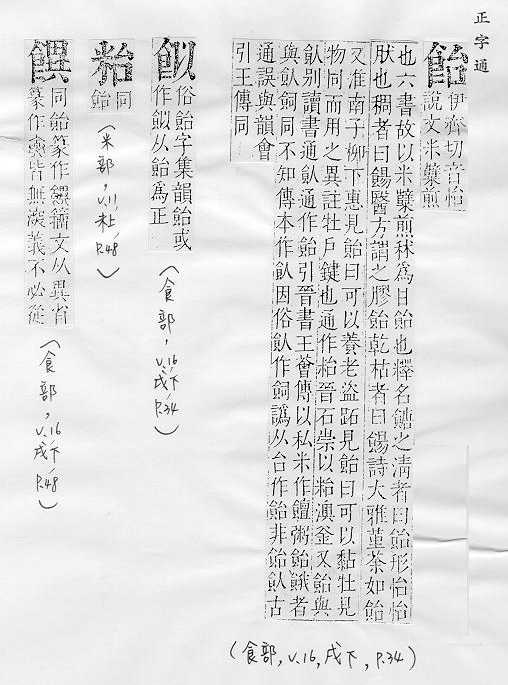 正字通
飴 伊齊切音怡
說文米糵煎
也六書故以米糵煎秫爲日飴也釋名餹之清者曰飴形怡怡
肰也稠者曰餳醫方謂之膠飴乾枯者曰餳詩大雅堇荼如飴
又淮南子柳下惠見飴曰可以養老盜跖見飴曰可以黏牡見
物同而用之異註牡戶鍵也通作粭晉石崇以粭澳釜又飴與
飤別讀書通飤通作飴引晉書王薈傳以私米作饘粥飴餓者
與飤飼同不知傳本作飤因俗飤作飼譌从台作飴非飴飤古
通誤與韻會
引王傳同
(食部, v.16, 戌下, p.34)
䬮 俗飴字集韻飴或
作䬮从飴為正
(食部, v.16, 戌下, p.34)
粭 同
飴
(米部, v.11, 未上, p.48)
饌 同飴篆作籀文从異省
篆作皆無義不必從
(食部, v.16, 戌下, p.48)